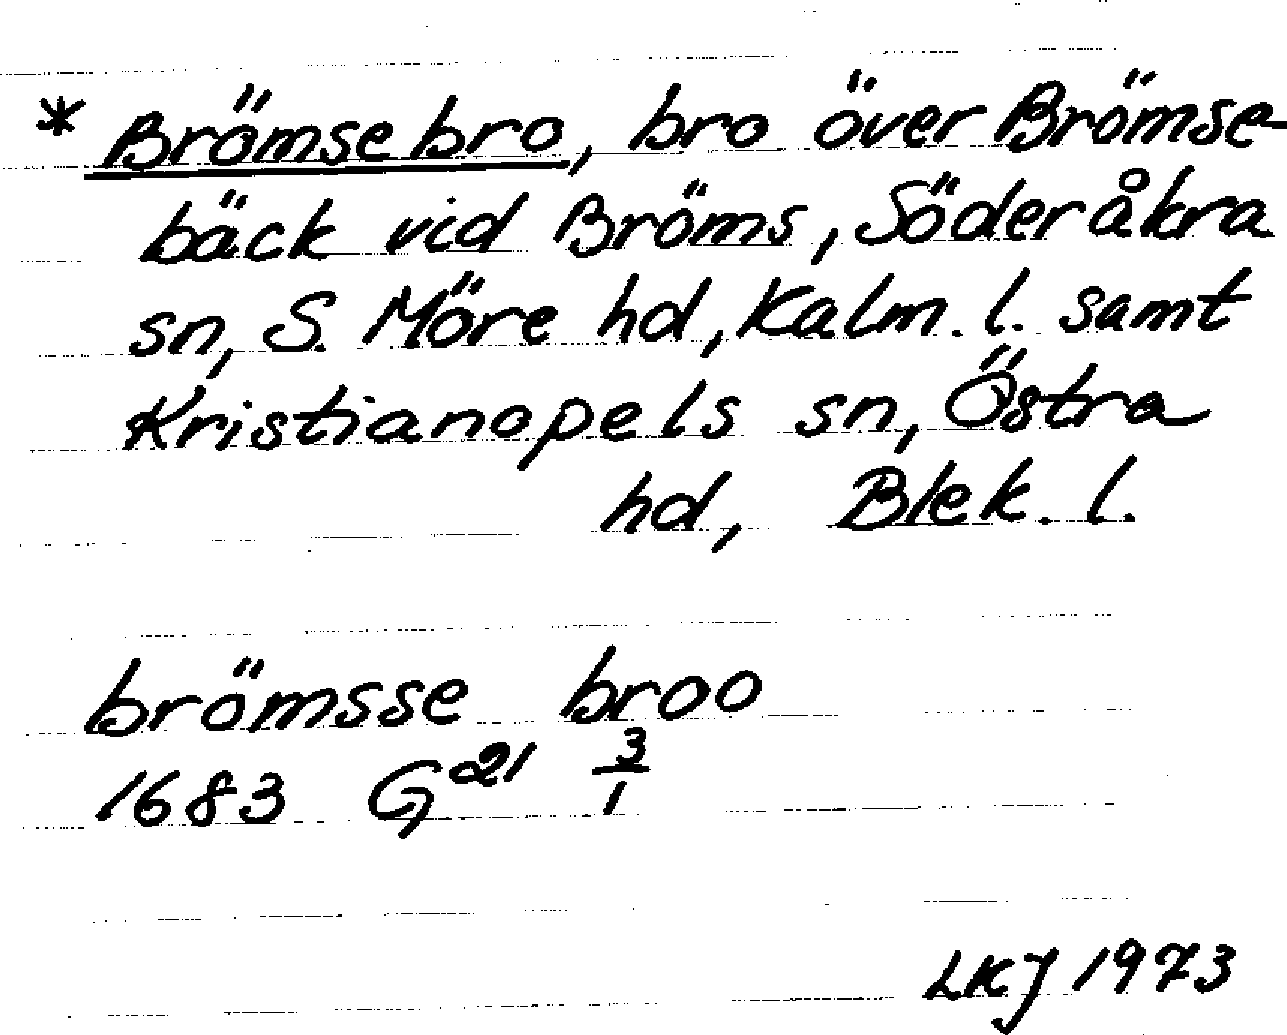 * Brömsebro, bro över Brömse-
bäck vid Bröms, Söderåkra
sn, S. Möre hd, Kalm. l. samt
Kristianopels sn, Östra
hd, Blek. l.
brömsse broo
1683 G²¹ 3/1
LKJ 1973